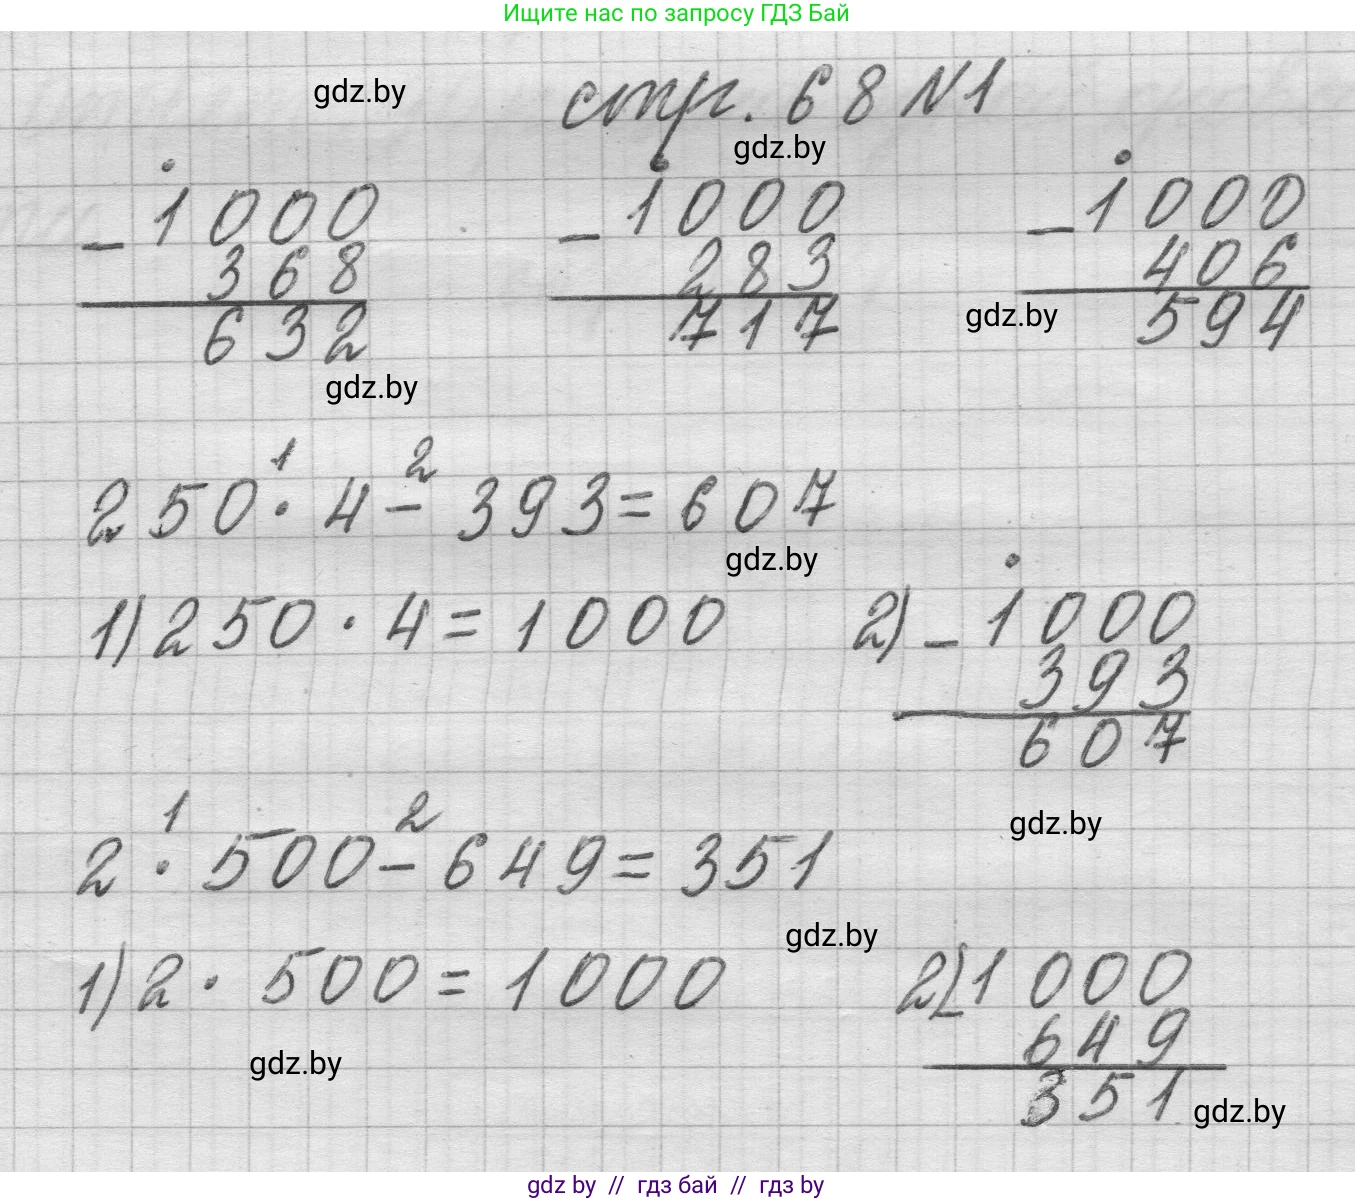 Ищите нас по запросу ГДЗ Бай
gdz.by
стр. 68 №1
gdz.by
- 1000 - 1000 - 1000
368 283 406
632 717 594
gdz.by
gdz.by
1 2
250 · 4 - 393 = 607
gdz.by
1) 250 · 4 = 1000 2) - 1000
393
607
1 2
gdz.by
2 · 500 - 649 = 351
gdz.by
1) 2 · 500 = 1000 2) - 1000
649
gdz.by
351
gdz.by
gdz by // гдз бай // гдз by